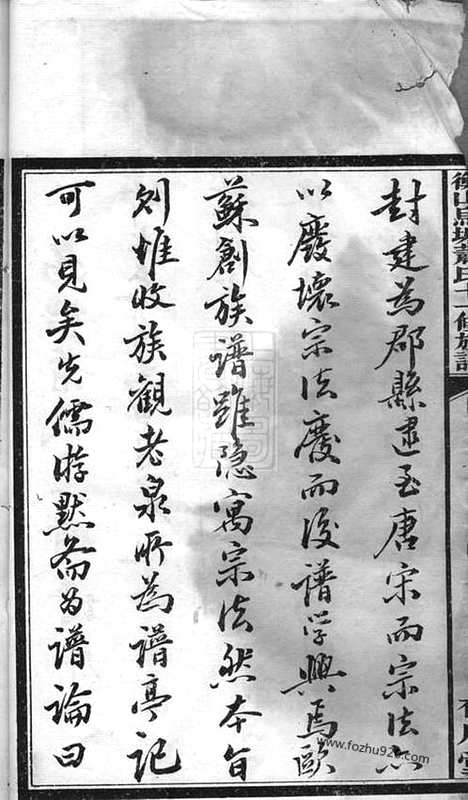 封建為郡縣逮至唐宋而宗法亦
以廢壞宗法廢而後譜学興焉歐
蘇創族譜雖隐寓宗法然本旨
則惟收族觀老泉所為譜亭記
可以見矣先儒游默斋為譜論曰
衡山馬堰蕭氏十一修族譜
www.fozhu920.com